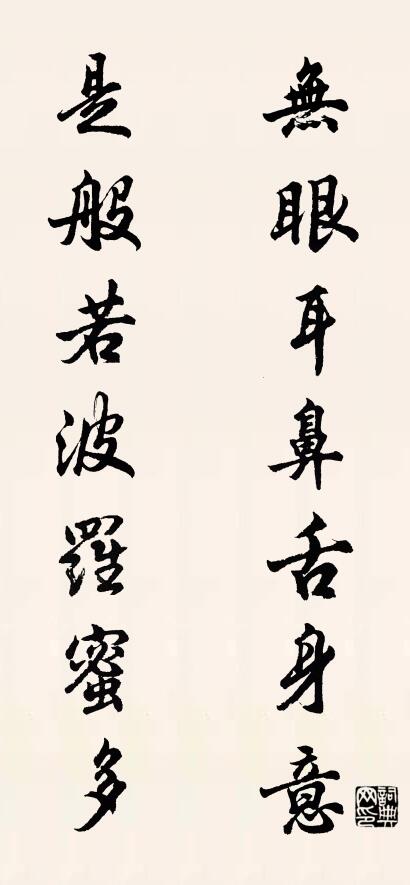 無眼耳鼻舌身意
是般若波羅蜜多
詞典網印